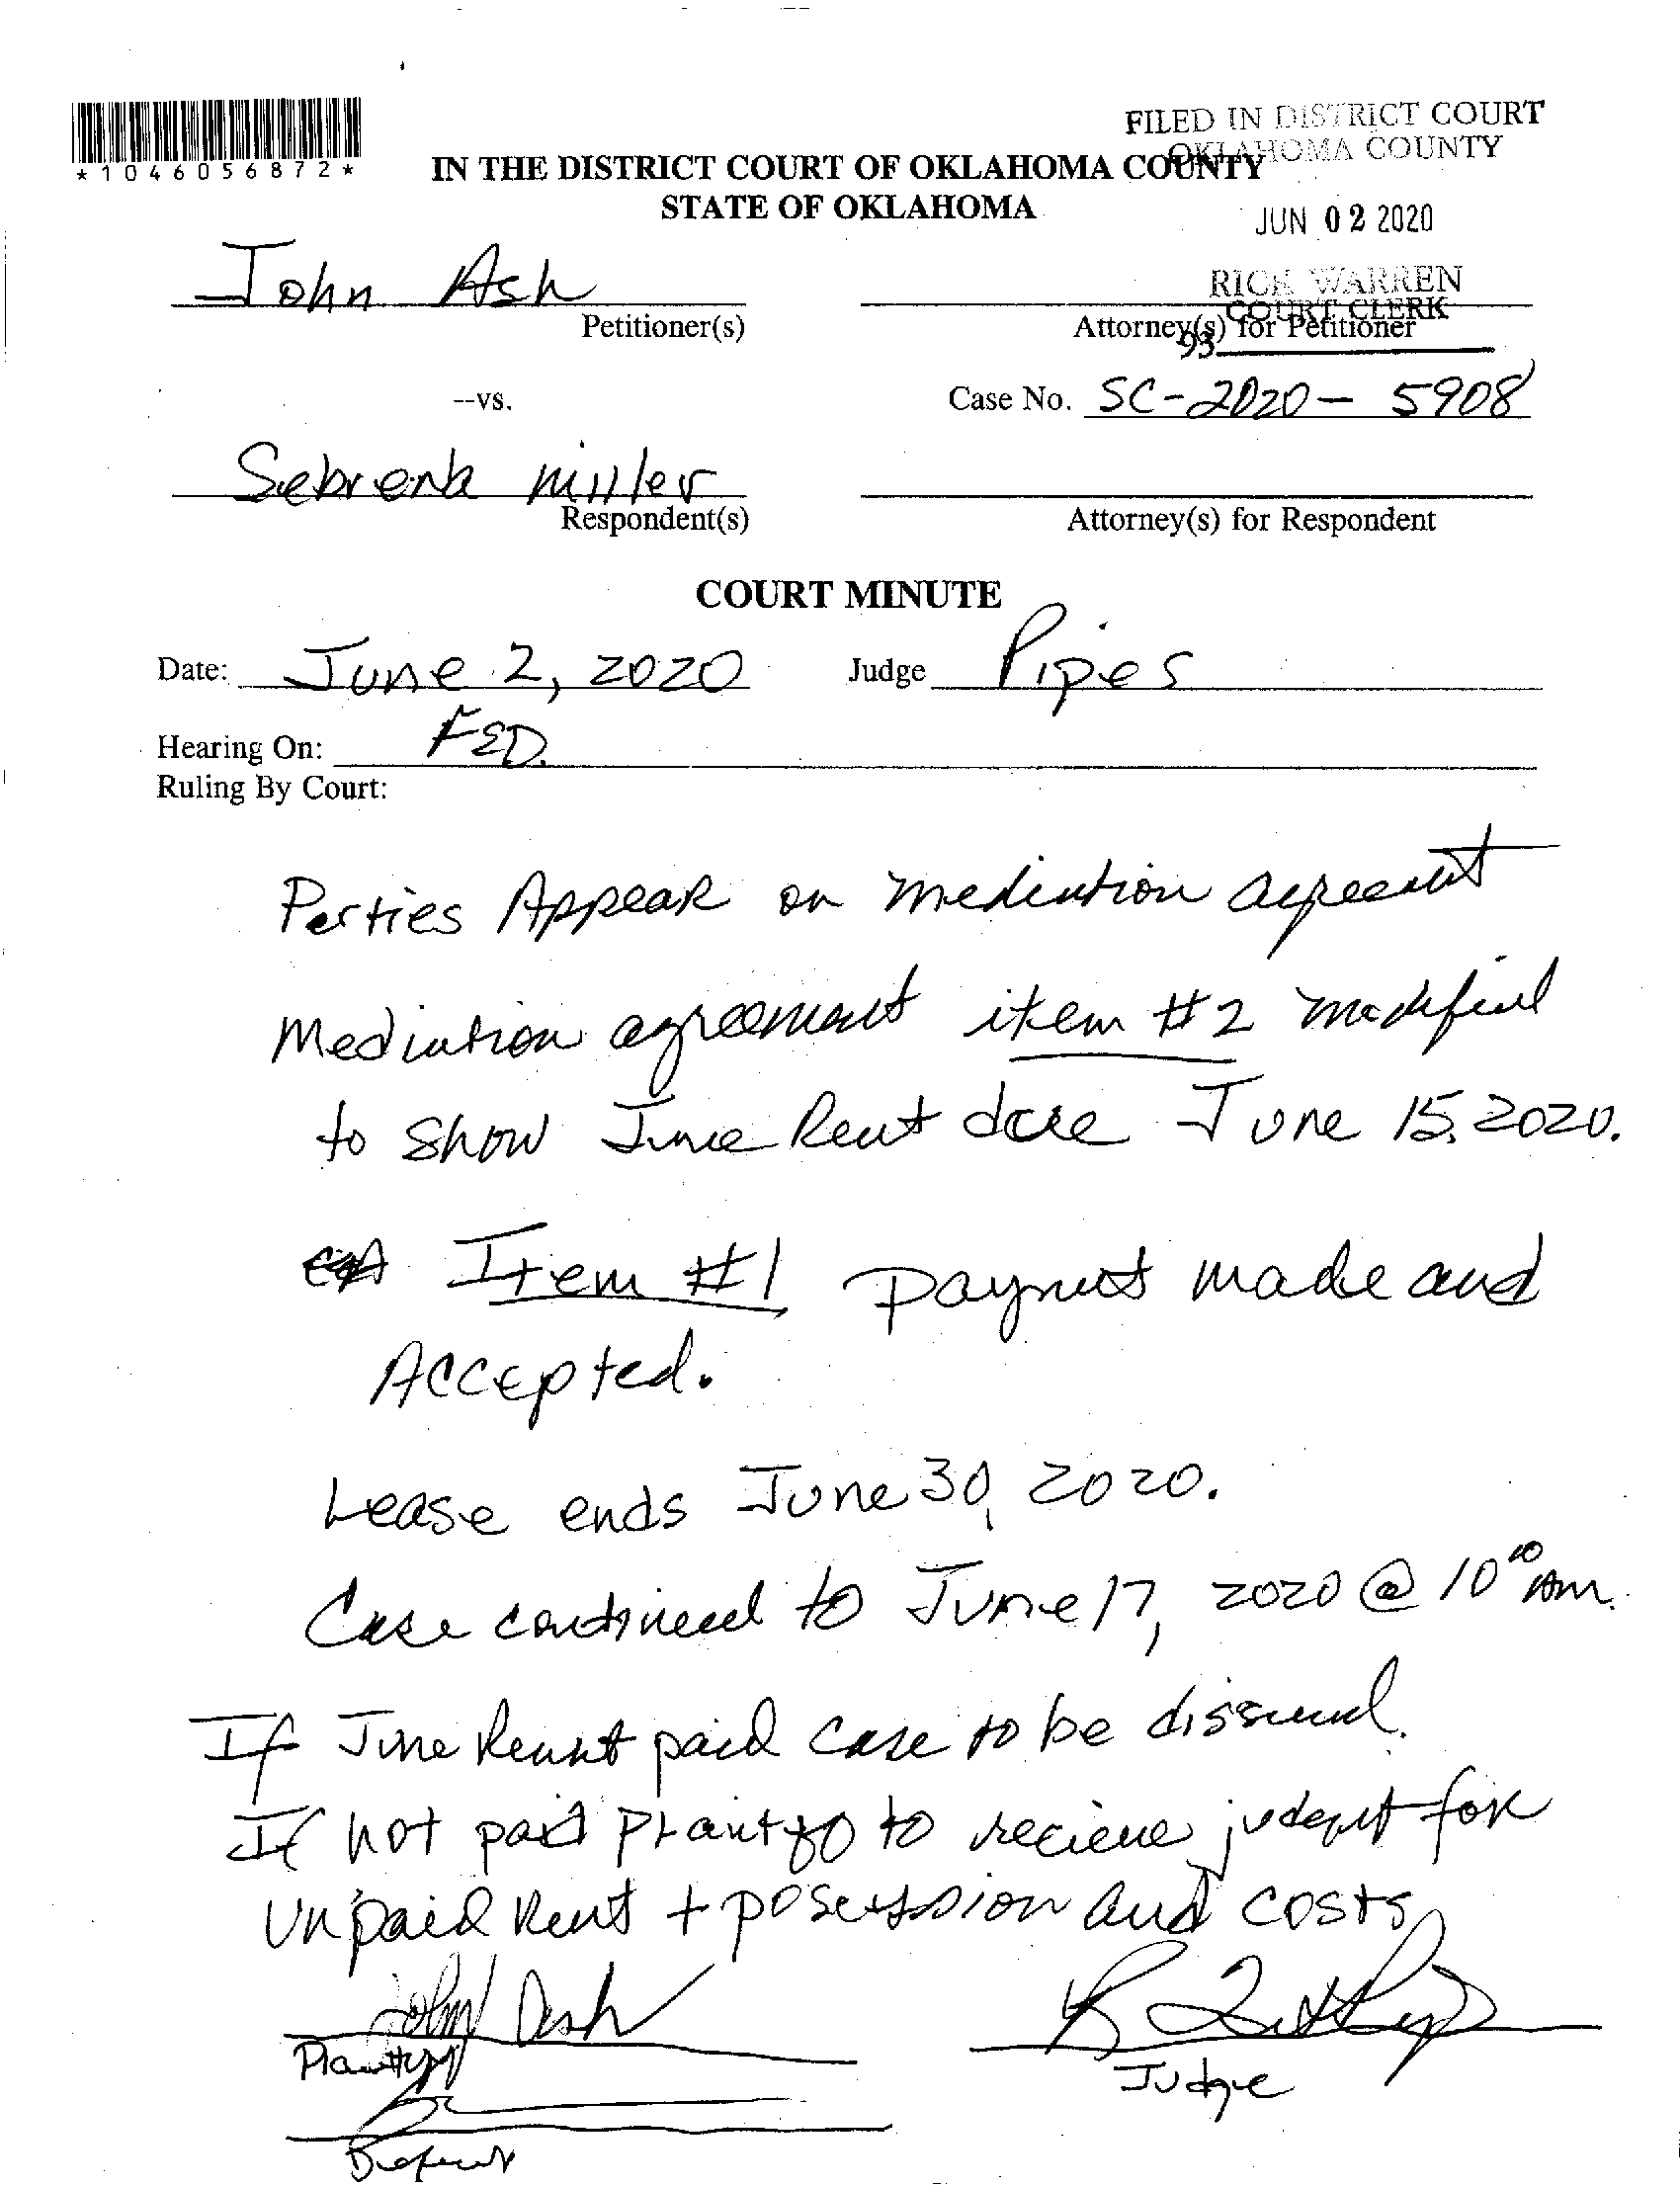 FILED IN DISTRICT COURT
OKLAHOMA COUNTY
*1046056872*
IN THE DISTRICT COURT OF OKLAHOMA COUNTY
STATE OF OKLAHOMA
JUN 02 2020
RICK WARREN
COURT CLERK
93
John Ash
Petitioner(s)
Attorney(s) for Petitioner
--vs.
Case No. SC-2020- 5908
Sebrena Miller
Respondent(s)
Attorney(s) for Respondent
COURT MINUTE
Date: June 2, 2020 Judge Pipes
Hearing On: FED.
Ruling By Court:
Parties Appear on mediation agreement
Mediation agreement item #2 modified
to show June Rent due June 15, 2020.
Item #1 payment made and
Accepted.
Lease ends June 30, 2020.
Case continued to June 17, 2020 @ 10 00 Am.
If June Rent paid case to be dismissed.
If not paid Plaintiff to recieve judgmt for
unpaid Rent + posession and costs
John Ash
Plaintiff
Judge
Defendant